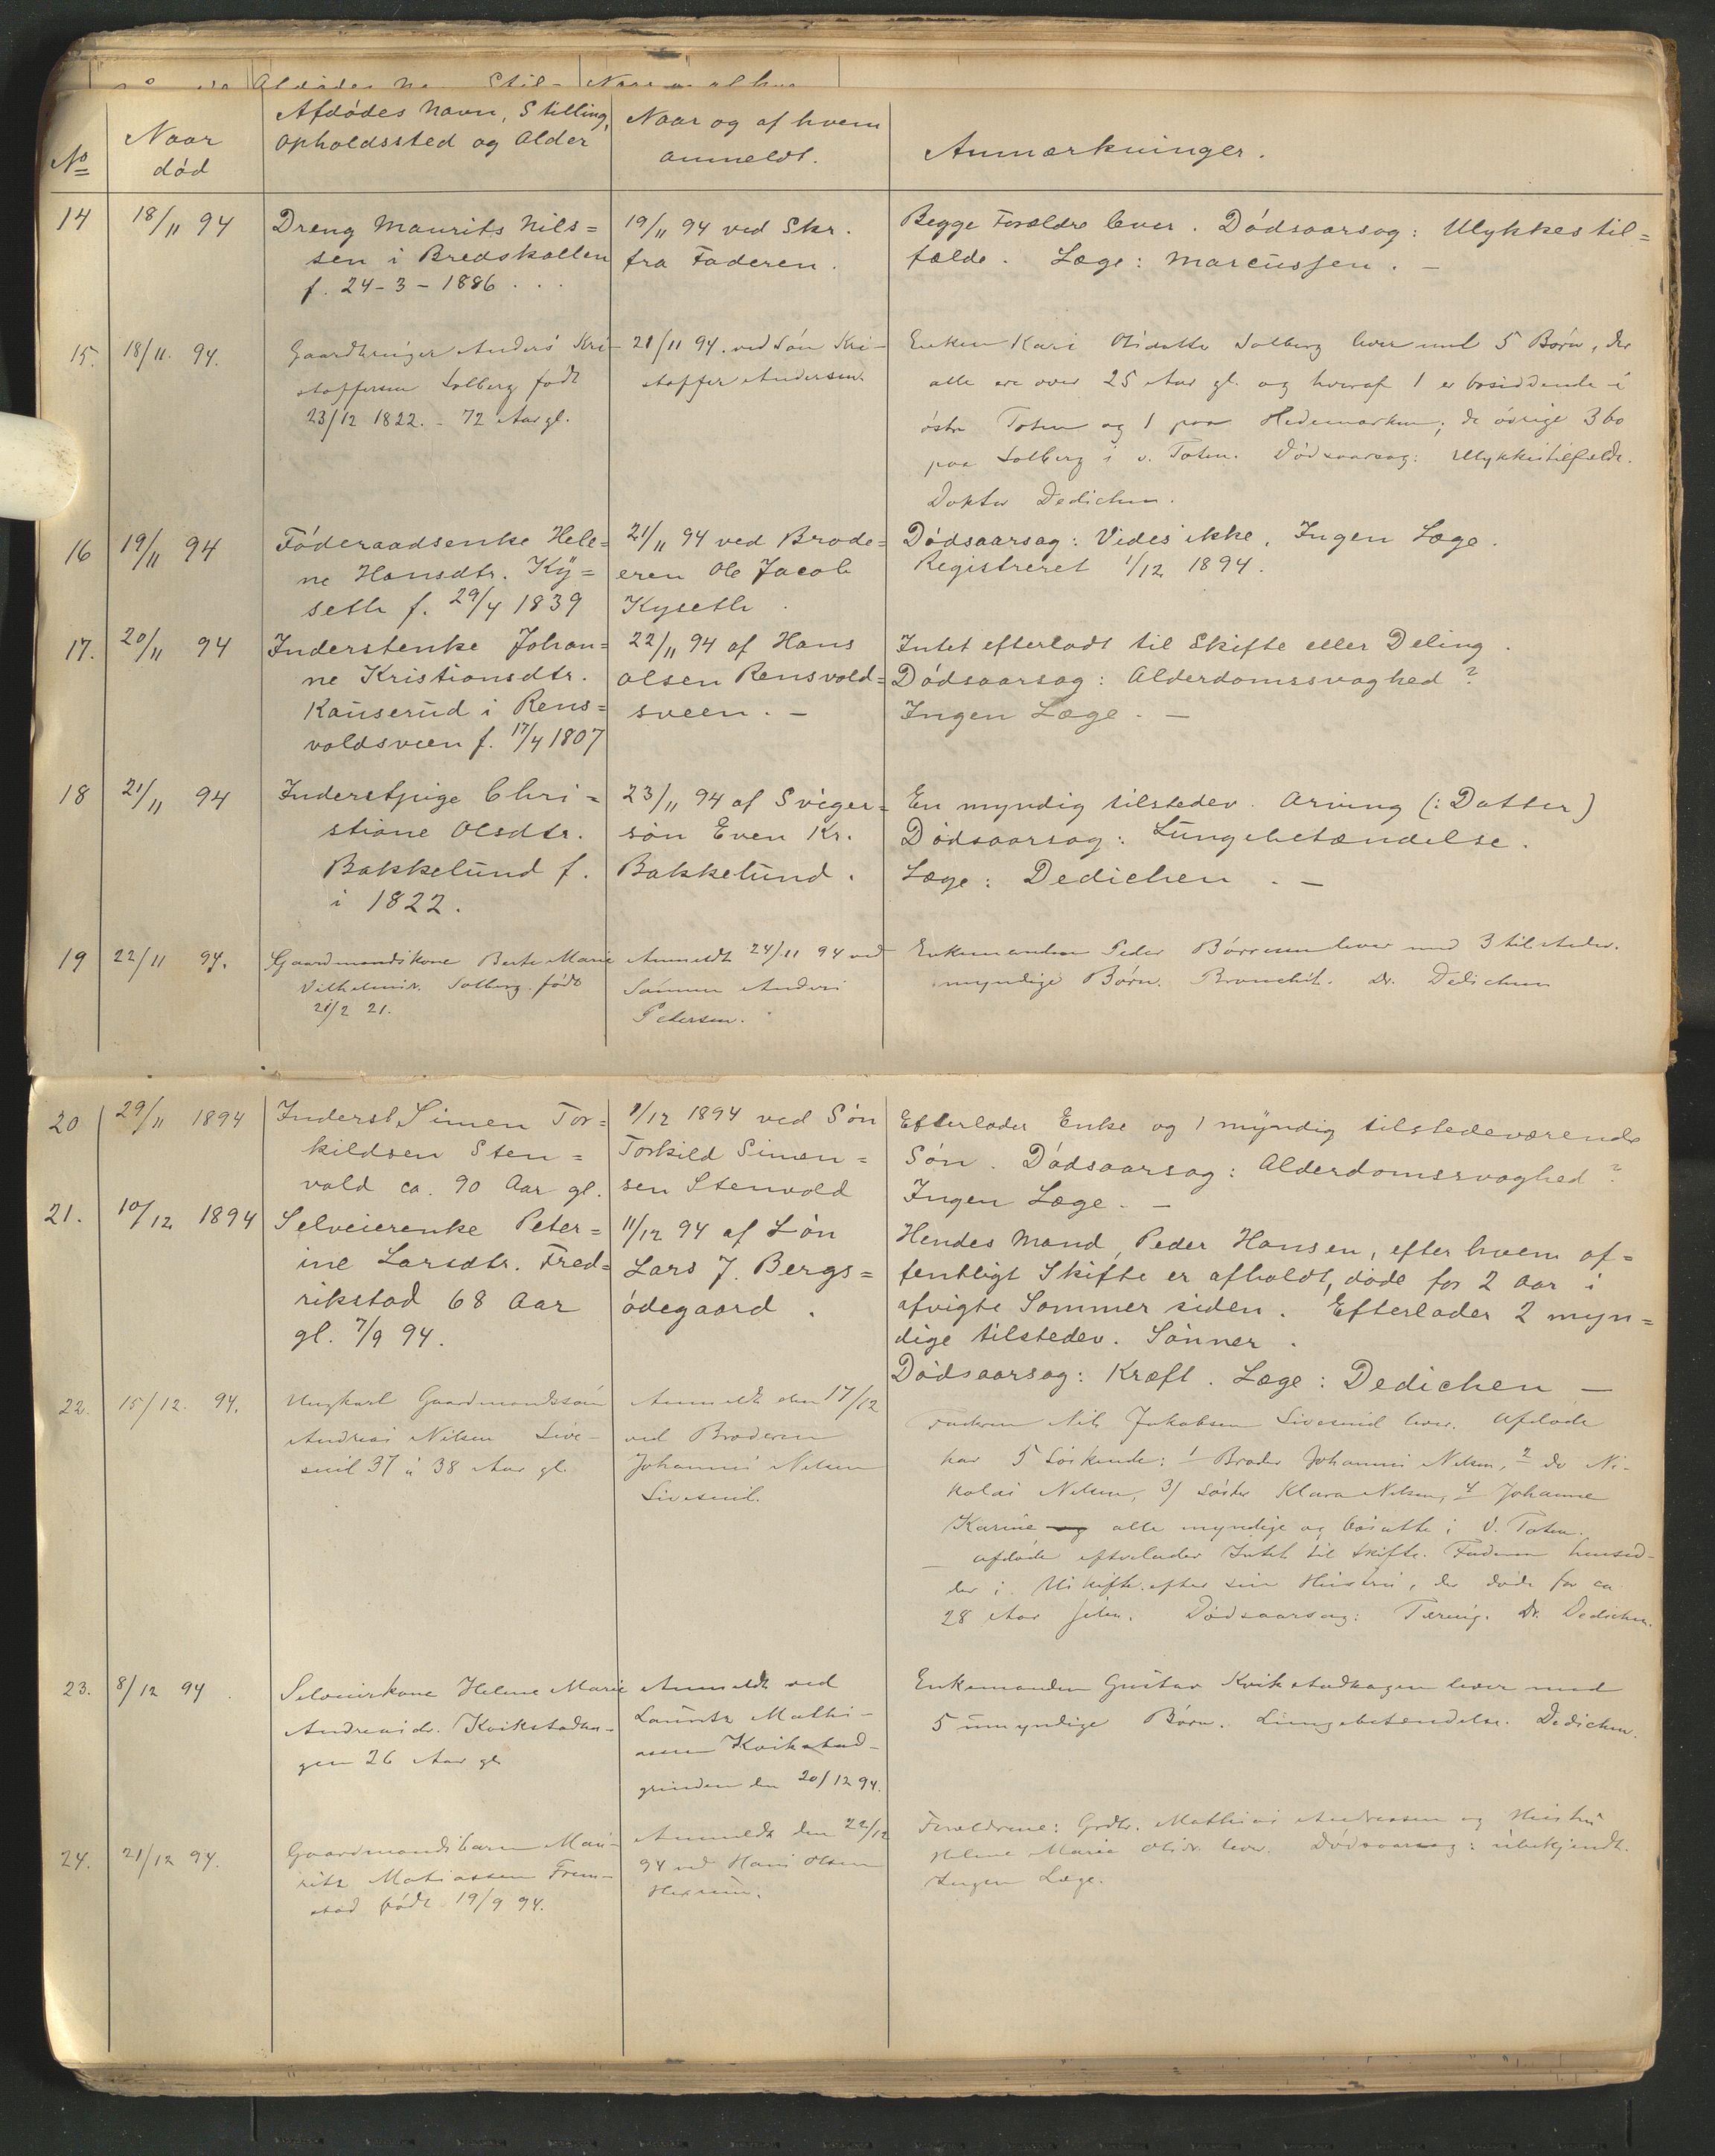 No
Naar
død
Afdødes Navn, Stilling,
Opholdssted og Alder
Naar og af hvem
anmeldt.
Anmærkninger.
14
18/11 94
Dreng Maurits Nils=
sen i Bredskallen
f. 24-3-1886 . . .
19/11 94 ved Skr.
fra Faderen.
Begge Forældre lever. Dødsaarsag: Ulykkestil=
fælde. Læge: Marcussen. –
15.
18/11. 94.
Gaardbruger Anders Kri-
stoffersen Solberg født
23/12 1822. - 72 Aar gl.
21/11 94. ved Søn Kri-
stoffer Andersen.
Enken Kari Olsdatter Solberg lever med 5 Børn, der
alle ere over 25 Aar gl. og hvoraf 1 er bosiddende i
østre Toten og 1 paa Hedemarken; de øvrige 3 bo
paa Solberg i v. Toten. Dødsaarsag: Ulykkestilfælde.
Doktor Dedichen.
16
19/11 94
Føderaadsenke Hele=
ne Hansdtr. Ky=
seth f. 29/4 1839
21/11 94 ved Brode=
eren Ole Jacob
Kyseth.
Dødsaarsag: Vides ikke. Ingen Læge.
Registreret 1/12 1894.
17.
20/11 94
Inderstenke Johan=
ne Kristiansdtr.
Kauserud i Rens=
voldsveen f. 17/4 1807
22/11 94 af Hans
Olsen Rensvold=
sveen. –
Intet efterladt til Skifte eller Deling.
Dødsaarsag: Alderdomssvaghed?
Ingen Læge. –
18
21/11 94
Inderstpige Chri=
stiane Olsdtr.
Bakkelund f.
i 1822.
23/11 94 af Sviger=
søn Even Kr.
Bakkelund.
En myndig tilstedev. Arving (: Datter)
Dødsaarsag: Lungebetændelse.
Læge: Dedichen. –
19
22/11 94.
Gaardmandskone Berte Marie
Vilhelmsdr. Solberg født
21/2 21.
Anmeldt 24/11 94 ved
Sønnen Anders
Petersen.
Enkemanden Peder Børresen lever med 3 tilstedev.
myndige Børn. Bronchit. Dr. Dedichen
20
29/11 1894
Inderst Simen Tor=
kildsen Sten=
vold ca. 90 Aar gl.
1/12 1894 ved Søn
Torkild Simen=
sen Stenvold
Efterlader Enke og 1 myndig tilstedeværende
Søn. Dødsaarsag: Alderdomssvaghed?
Ingen Læge. –
21.
10/12 1894
Selveierenke Peter=
ine Larsdtr. Fred=
rikstad 68 Aar
gl. 7/9 94.
11/12 94 af Søn
Lars J. Bergs=
ødegaard.
Hendes Mand, Peder Hansen, efter hvem of=
fentligt Skifte er afholdt, døde for 2 Aar i
afvigte Sommer siden. Efterlader 2 myn=
dige tilstedev. Sønner.
Dødsaarsag: Kræft. Læge: Dedichen –
22.
15/12. 94.
Ungkarl Gaardmandssøn
Andreas Nilsen Live-
snil 37 à 38 Aar gl.
Anmeldt den 17/12
ved Broderen
Johannes Nelsen
Livesnil.
Faderen Nils Jakobsen Livesnil lever. Afdøde
har 5 Søskende: 1 Broder Johannes Nelsen, 2 do Ni-
kolai Nelsen, 3/ Søster Klara Nelsen, 4 Johanne
Karine og alle myndige og bosatte i V. Toten.
– Afdøde efterlader Intet til Skifte. Faderen hensid-
der i Uskifte efter sin Hustru, der døde for ca
28 Aar siden. Dødsaarsag: Tæring. Dr. Dedichen.
23.
8/12 94.
Selveierkone Helene Marie
Andreasdr. Kvikstadha-
gen 26 Aar gl
Anmeldt ved
Lauritz Mathi-
asen Kvikstad-
grinden den 20/12 94.
Enkemanden Gustav Kvikstadhagen lever med
5 umyndige Børn. Lungebetændelse. Dedichen.
24.
21/12 94.
Gaardmandsbarn Mau-
ritz Matiassen Frem-
stad født 19/9 94.
Anmeldt den 22/12
94 ved Hans Olsen
Forældrene: Grdbr. Mathias Andreasen og Hustru
Helene Marie Olsdr. lever. Dødsaarsag: ubekjendt.
Ingen Læge.